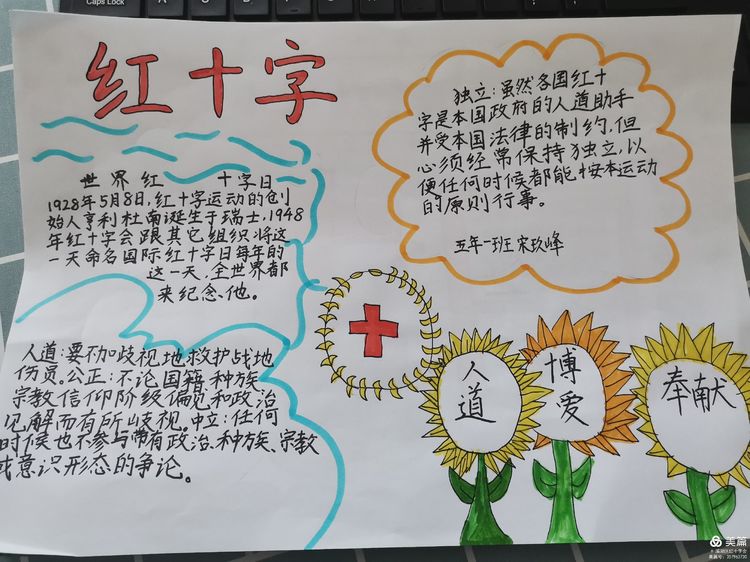 Caps Lock
红十字
世界红 十字日
1928年5月8日,红十字运动的创
始人亨利杜南诞生于瑞士,1948
年红十字会跟其它组织将这
一天命名国际红十字日每年的
这一天,全世界都
来纪念他。
独立:虽然各国红十
字是本国政府的人道助手
并受本国法律的制约,但
必须经常保持独立,以
便任何时候都能按本运动
的原则行事。
五年一班宋玖峰
人道:要不加歧视地救护战地
伤员。公正:不论国籍、种族、
宗教信仰阶级偏见和政治
见解而有所歧视。中立:任何
时候也不参与带有政治、种族、宗教
或意识形态的争论。
人道
博爱
奉献
美篇